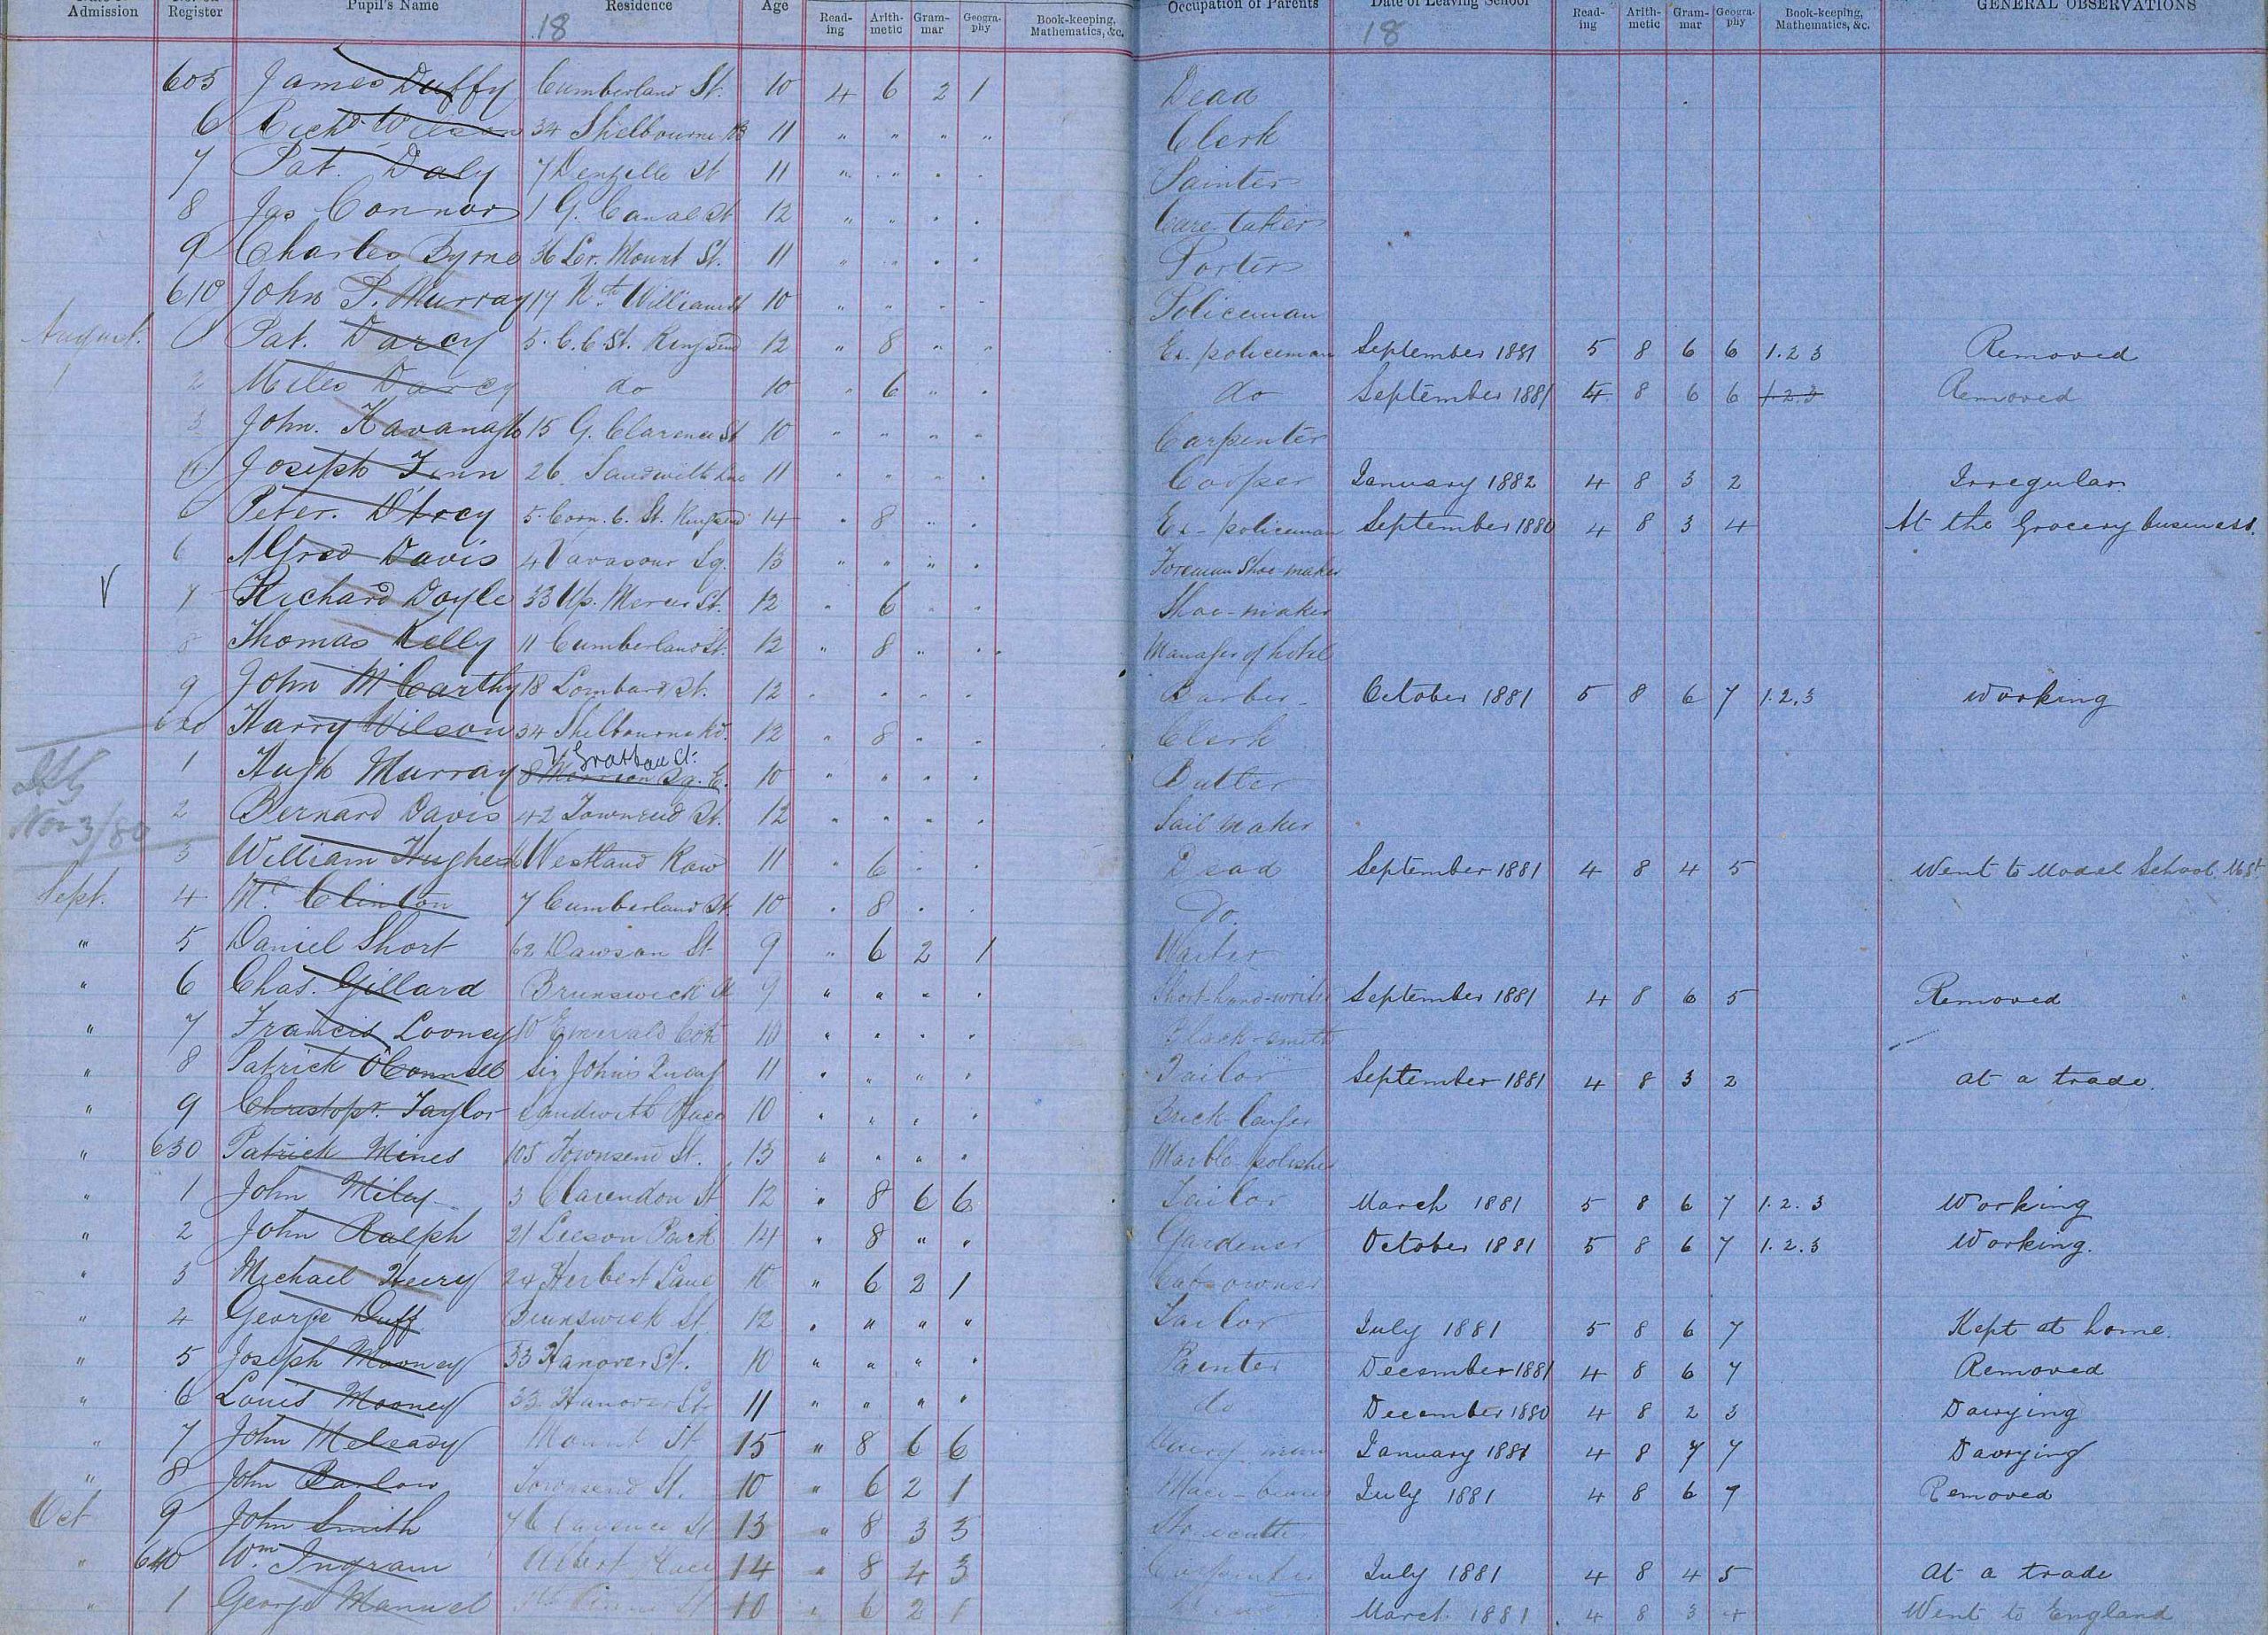 Admission Register Pupil's Name Residence Age Read-ing Arith-metic Gram-mar Geogra-phy Book-keeping, Mathematics, &c. Occupation of Parents Date of Leaving School Read-ing Arith-metic Gram-mar Geogra-phy Book-keeping, Mathematics, &c. GENERAL OBSERVATIONS
18 18
605 James Duffy Cumberland St. 10 4 6 2 1 Dead
6 Richd Wilson 34 Shelbourne Rd 11 " " " " Clerk
7 Pat. Daly 7 Denzille St 11 " " " " Painter
8 Jas Connor 1 G. Canal St 12 " " " " Care-taker
9 Charles Byrne 36 Lr. Mount St. 11 " " " " Porter
610 John P. Murray 17 Nth William St 10 " " " " Policeman
August. 1 Pat. Darcy 5. C. C St. Ringsend 12 " 8 " " Ex. policeman September 1881 5 8 6 6 1.2 3 Removed
2 Miles Darcy do 10 " 6 " " do September 1881 4 8 6 6 1.2.3 Removed
3 John. Kavanagh 15 G. Clarence St 10 " " " " Carpenter
4 Joseph Finn 26 Sandwith 11 " " " " Cooper January 1882 4 8 3 2 Irregular
Peter. D'Arcy 5. Corn. C. St. Ringsend 14 " 8 " " Ex-policeman September 1880 4 8 3 4 At the Grocery business.
6 Alfred Davis 4 Vavasour Sq. 13 " " " " Foreman Shoe-maker
7 Richard Doyle 33 Up. Mercer St. 12 " 6 " " Shoe-maker
8 Thomas Kelly 11 Cumberland St. 12 " 8 " " Manager of hotel
9 John McCarthy 18 Lombard St. 12 " " " " Barber October 1881 5 8 6 7 1.2.3 Working
620 Harry Wilson 34 Shelbourne Rd. 12 " 8 " " Clerk
7 Grattan St.
1 Hugh Murray 8 Merrion Sq. E. 10 " " " " Butler
2 Bernard Davis 42 Townsend St. 12 " " " " Sail maker
Nov 3/80
3 William Hughes Westland Row 11 " 6 " " Dead September 1881 4 8 4 5 Went to Model School.
Sept. 4 Clinton 7 Cumberland St. 10 " 8 " " Do.
" 5 Daniel Short 62 Dawson St 9 " 6 2 1 Waiter
" 6 Chas. Gillard Brunswick St 9 " " " " Short-hand-writer September 1881 4 8 6 5 Removed
" 7 Francis Looney 10 Emerald Cot 10 " " " " Black-smith
" 8 Patrick O'Connell Sir John's Quay 11 " " " " Tailor September 1881 4 8 3 2 at a trade.
" 9 Christopr. Taylor Sandwith Place 10 " " " " Brick-layer
" 630 Patrick Mines 105 Townsend St. 13 " " " " Marble-polisher
" 1 John Miley 3 Clarendon St 12 " 8 6 6 Tailor March 1881 5 8 6 7 1.2.3 Working
" 2 John Ralph 21 Leeson Park 14 " 8 " " Gardener October 1881 5 8 6 7 1.2.3 Working.
" 3 Michael Heery 24 Herbert Lane 10 " 6 2 1 Cab-owner
" 4 George Duff Brunswick St. 12 " " " " Tailor July 1881 5 8 6 7 Kept at home.
" 5 Joseph Mooney 33 Hanover St. 10 " " " " Painter December 1881 4 8 6 7 Removed
" 6 Louis Mooney 33 Hanover St. 11 " " " " do December 1880 4 8 2 3 Dairying
" 7 John Meleady Mount St 15 " 8 6 6 January 1881 4 8 7 7 Dairying
" 8 John Barlow Townsend St. 10 " 6 2 1 July 1881 4 8 6 7 Removed
Oct 9 John Smith Clarence St 13 " 8 3 3 Stonecutter
" 640 Wm Ingram Albert Place 14 " 8 4 3 Carpenter July 1881 4 8 4 5 At a trade
" 1 George Manuel 10 " 6 2 1 March 1881 4 8 3 4 Went to England